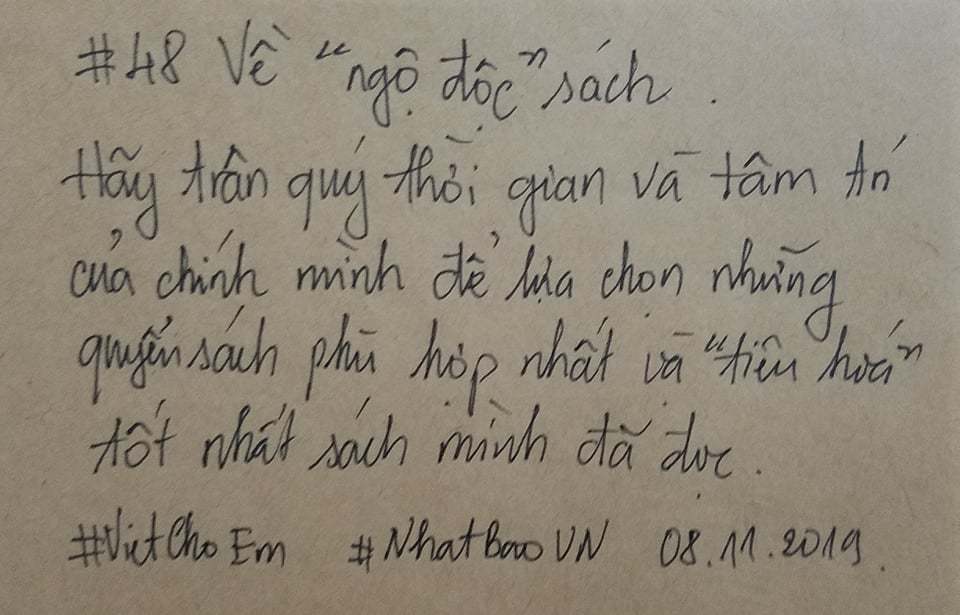 #48 Về "ngộ độc" sách.
Hãy trân quý thời gian và tâm trí
của chính mình để lựa chọn những
quyển sách phù hợp nhất và "tiêu hoá"
tốt nhất sách mình đã đọc.
#VietChoEm #NhatBaoVN 08.11.2019.